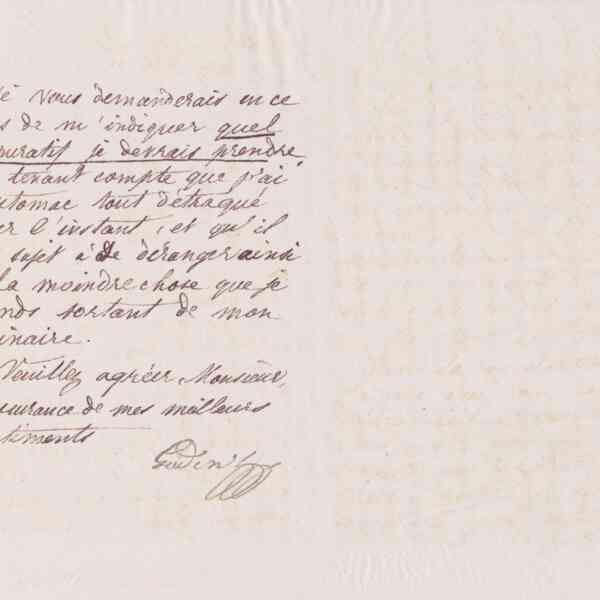 è vous demanderais en ce
s de m'indiquer quel
puratif je devrais prendre,
tenant compte que j'ai
stomac tout détraqué
er l'instant, et qu'il
sujet à se déranger ainsi
la moindre chose que je
ends sortant de mon
inaire.
Veuillez agréer, Monsieur,
surance de mes meilleurs
timents